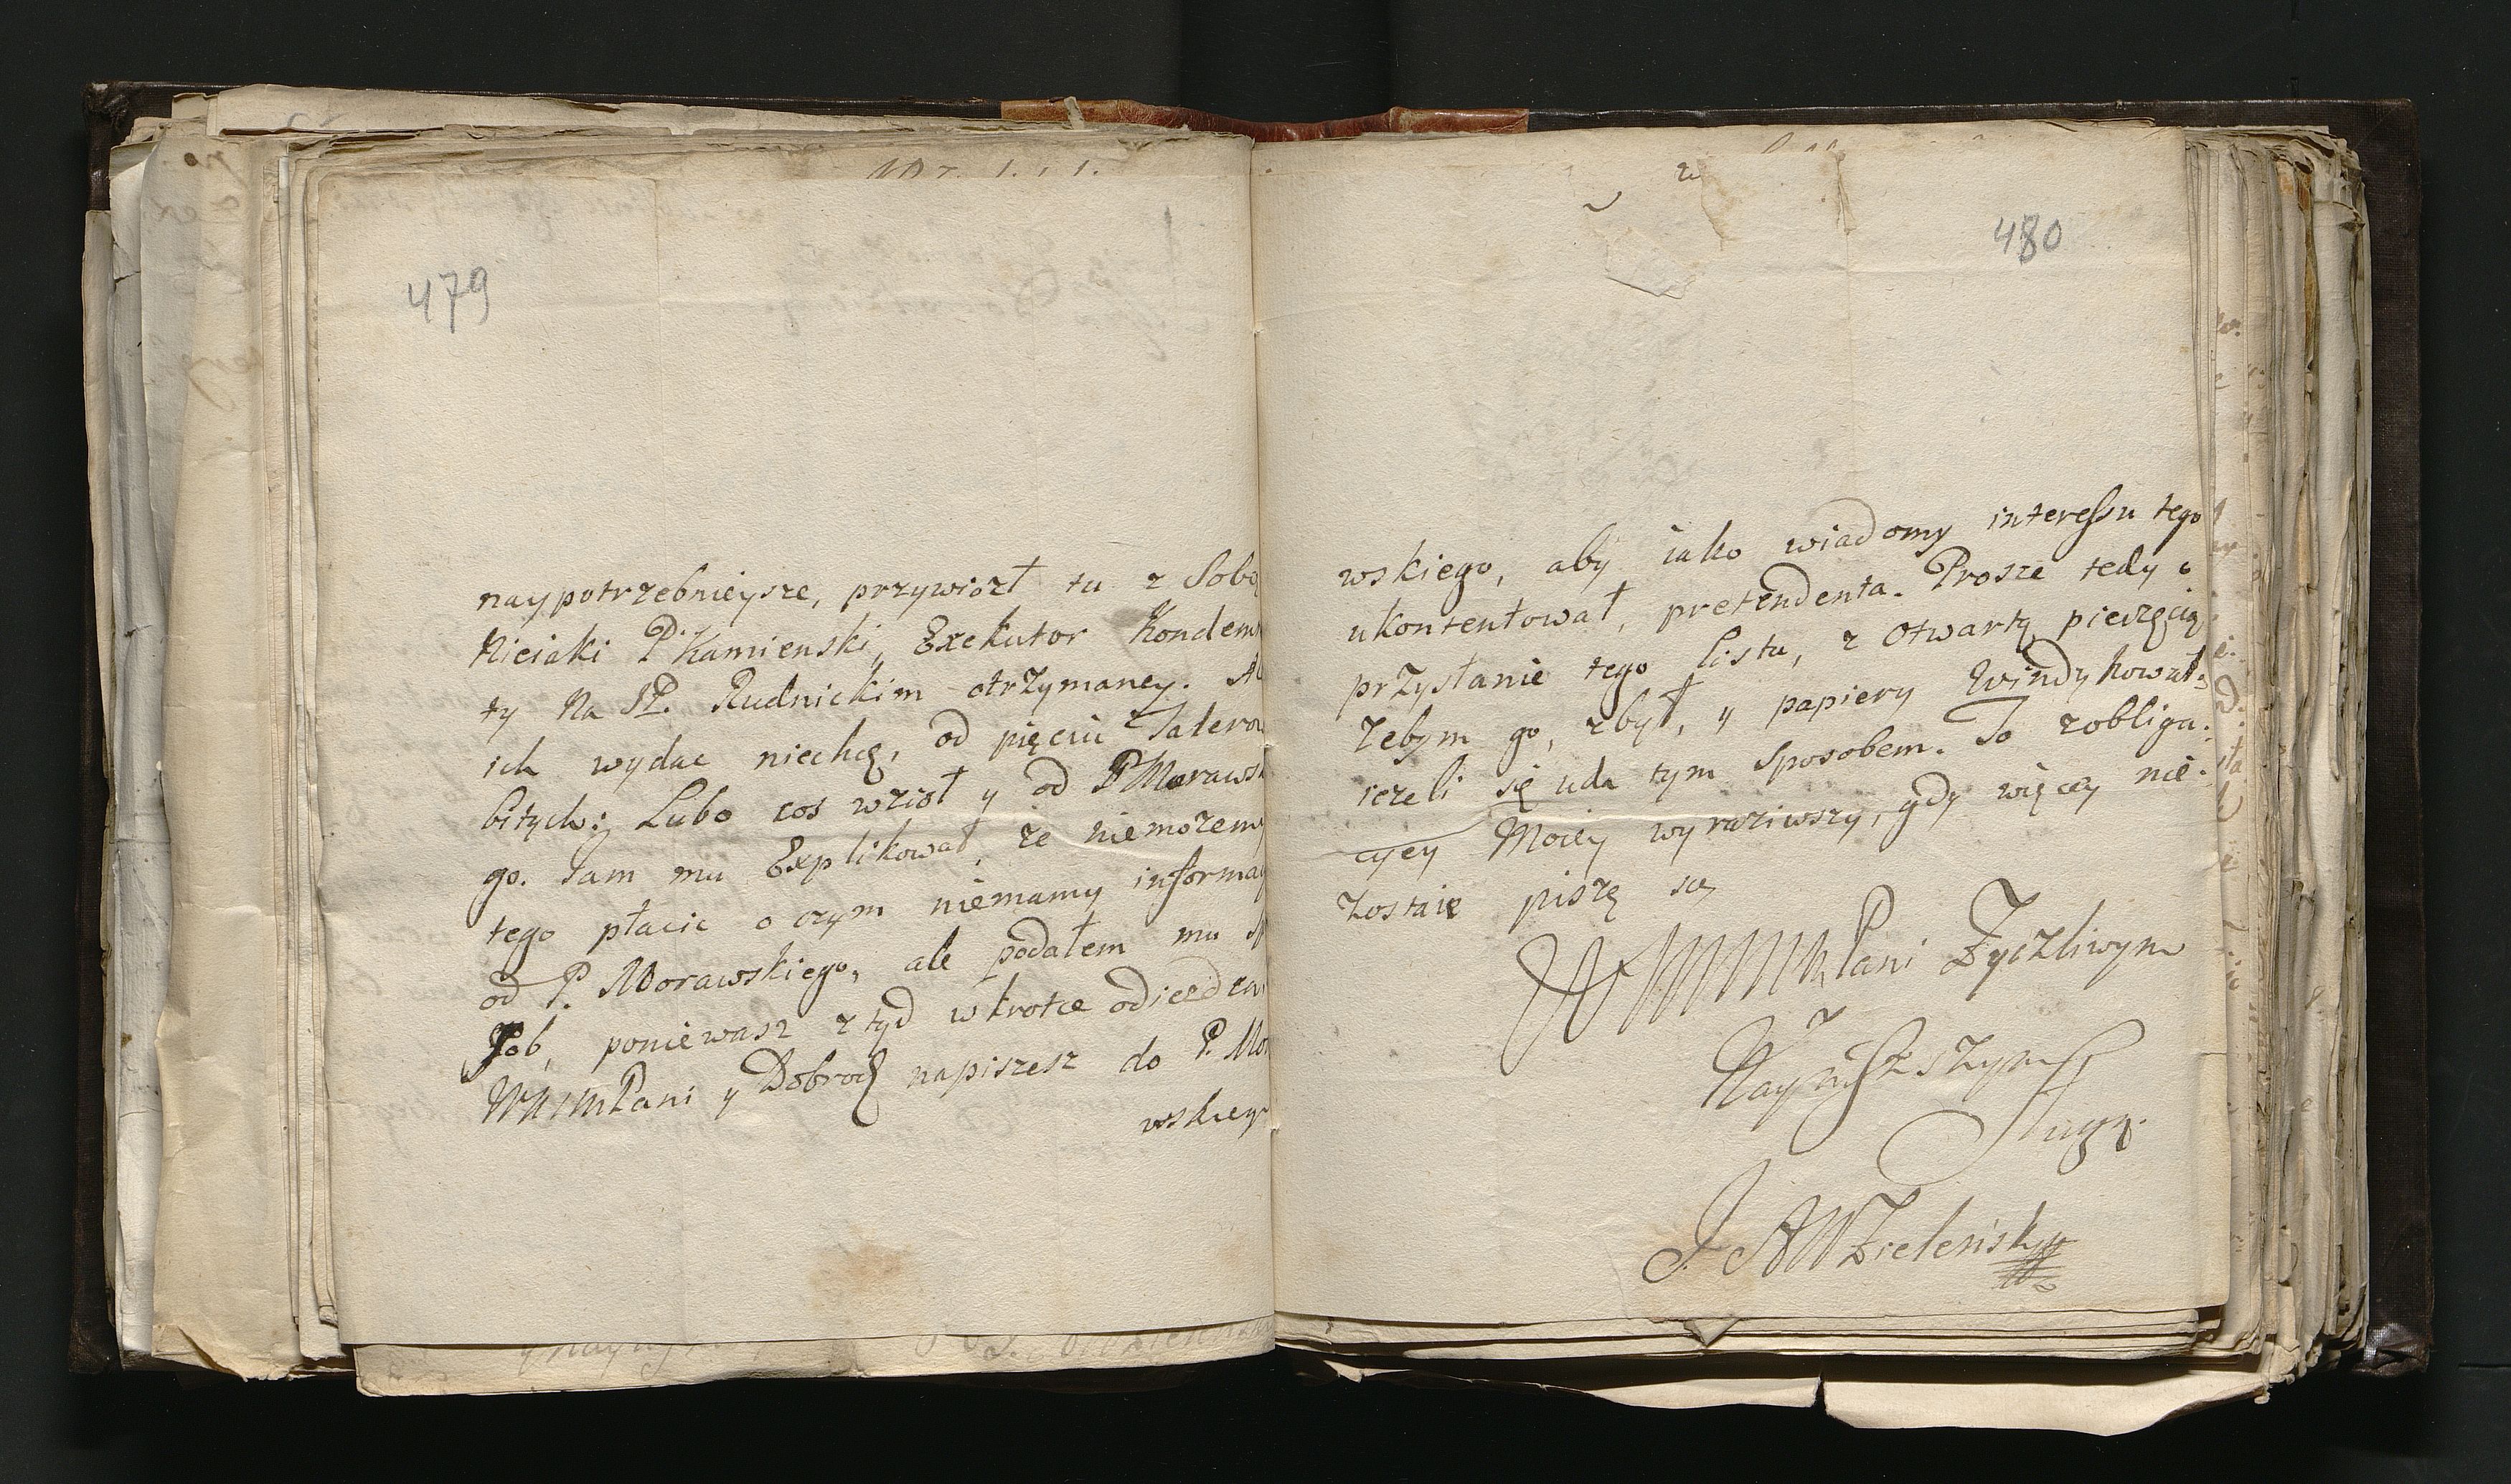 479
naypotrzebnieysze, przywiozł tu z Sobą
Nieiaki P. Kamienski, Exekutor Kondem
ty Na JP. Rudnickim otrzymaney.
ich wydac niechcę, od pięciu Talerow
bitych: Lubo cos wzioł y od P Morawsk
go. Jam mu Explikował, ze niemozemy
tego płacic o czym niemamy informa
od P. Morawskiego, ale podałem mu sp
Sob, poniewasz z tyd wkrotce odiedza
WMMPani y Dobrodz napiszesz do P. Mo
wskieg
480
wskiego, aby iako wiadomy interessu tego
ukontentował, pretendenta. Prosze tedy o
przysłanie tego listu, z Otwartą pieczęcią
Zebym go, zbył, y papiery Windykował,
iezeli się uda tym Sposobem. To zobliga:
cyey Moiey wyraziwszy, gdy więcey nie
zostaie piszę się
Pani Zyczliwym
Nayniszszym
Sługą.
J. AW Zielenskyy